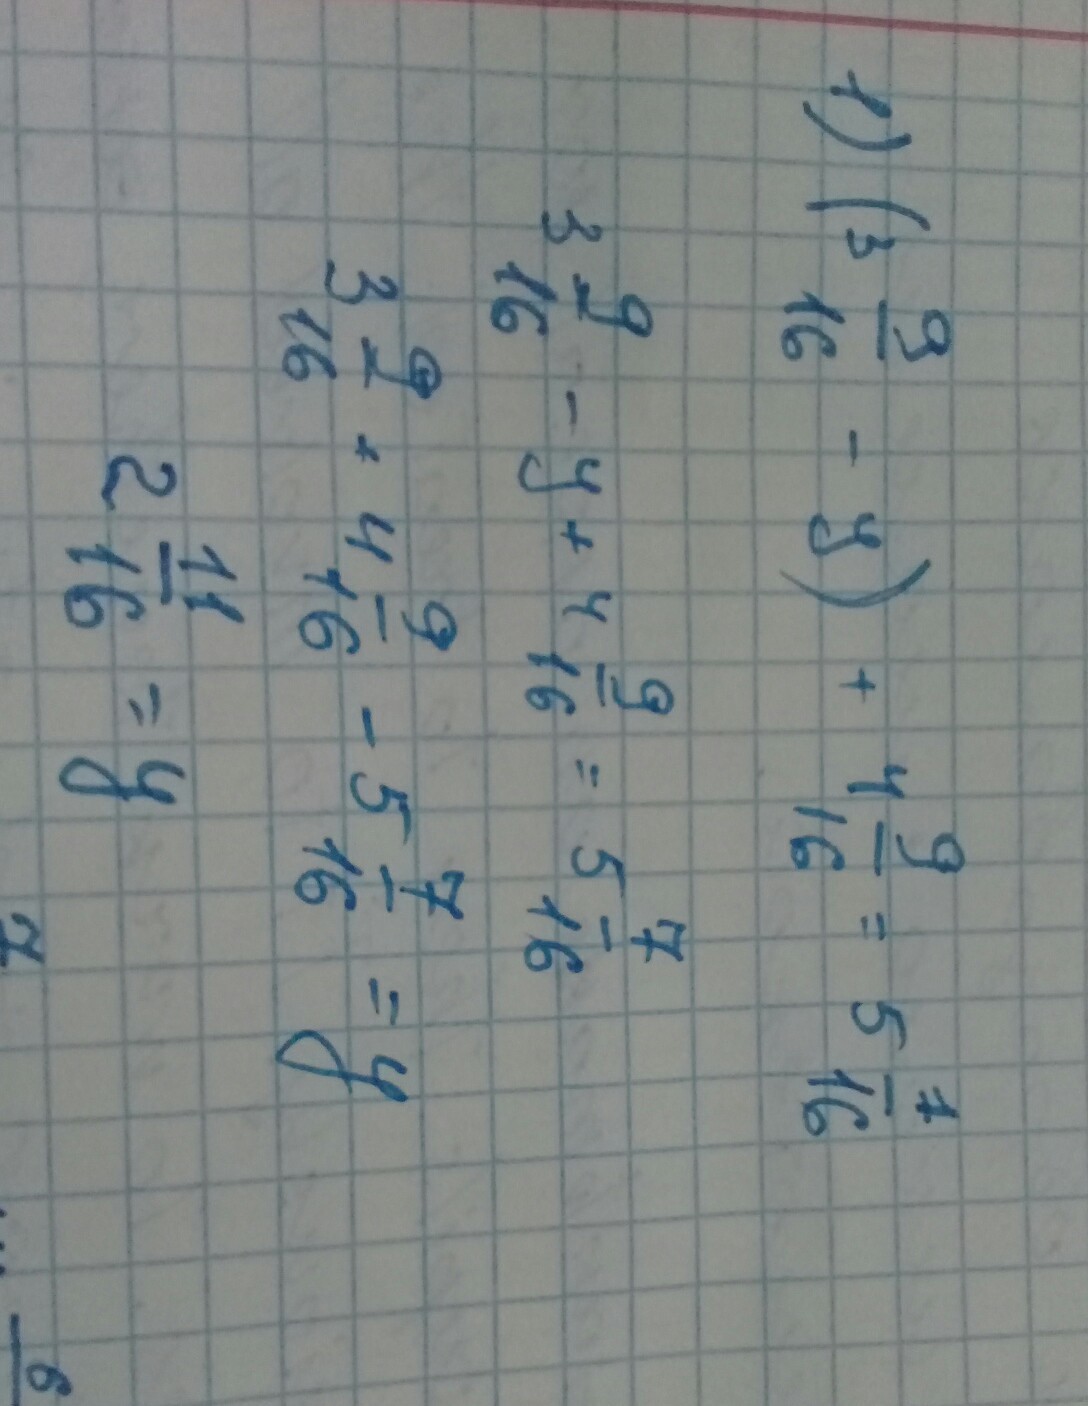 1) (3 9/16 - y) + 4 9/16 = 5 7/16
3 9/16 - y + 4 9/16 = 5 7/16
3 9/16 + 4 9/16 - 5 7/16 = y
2 11/16 = y
7